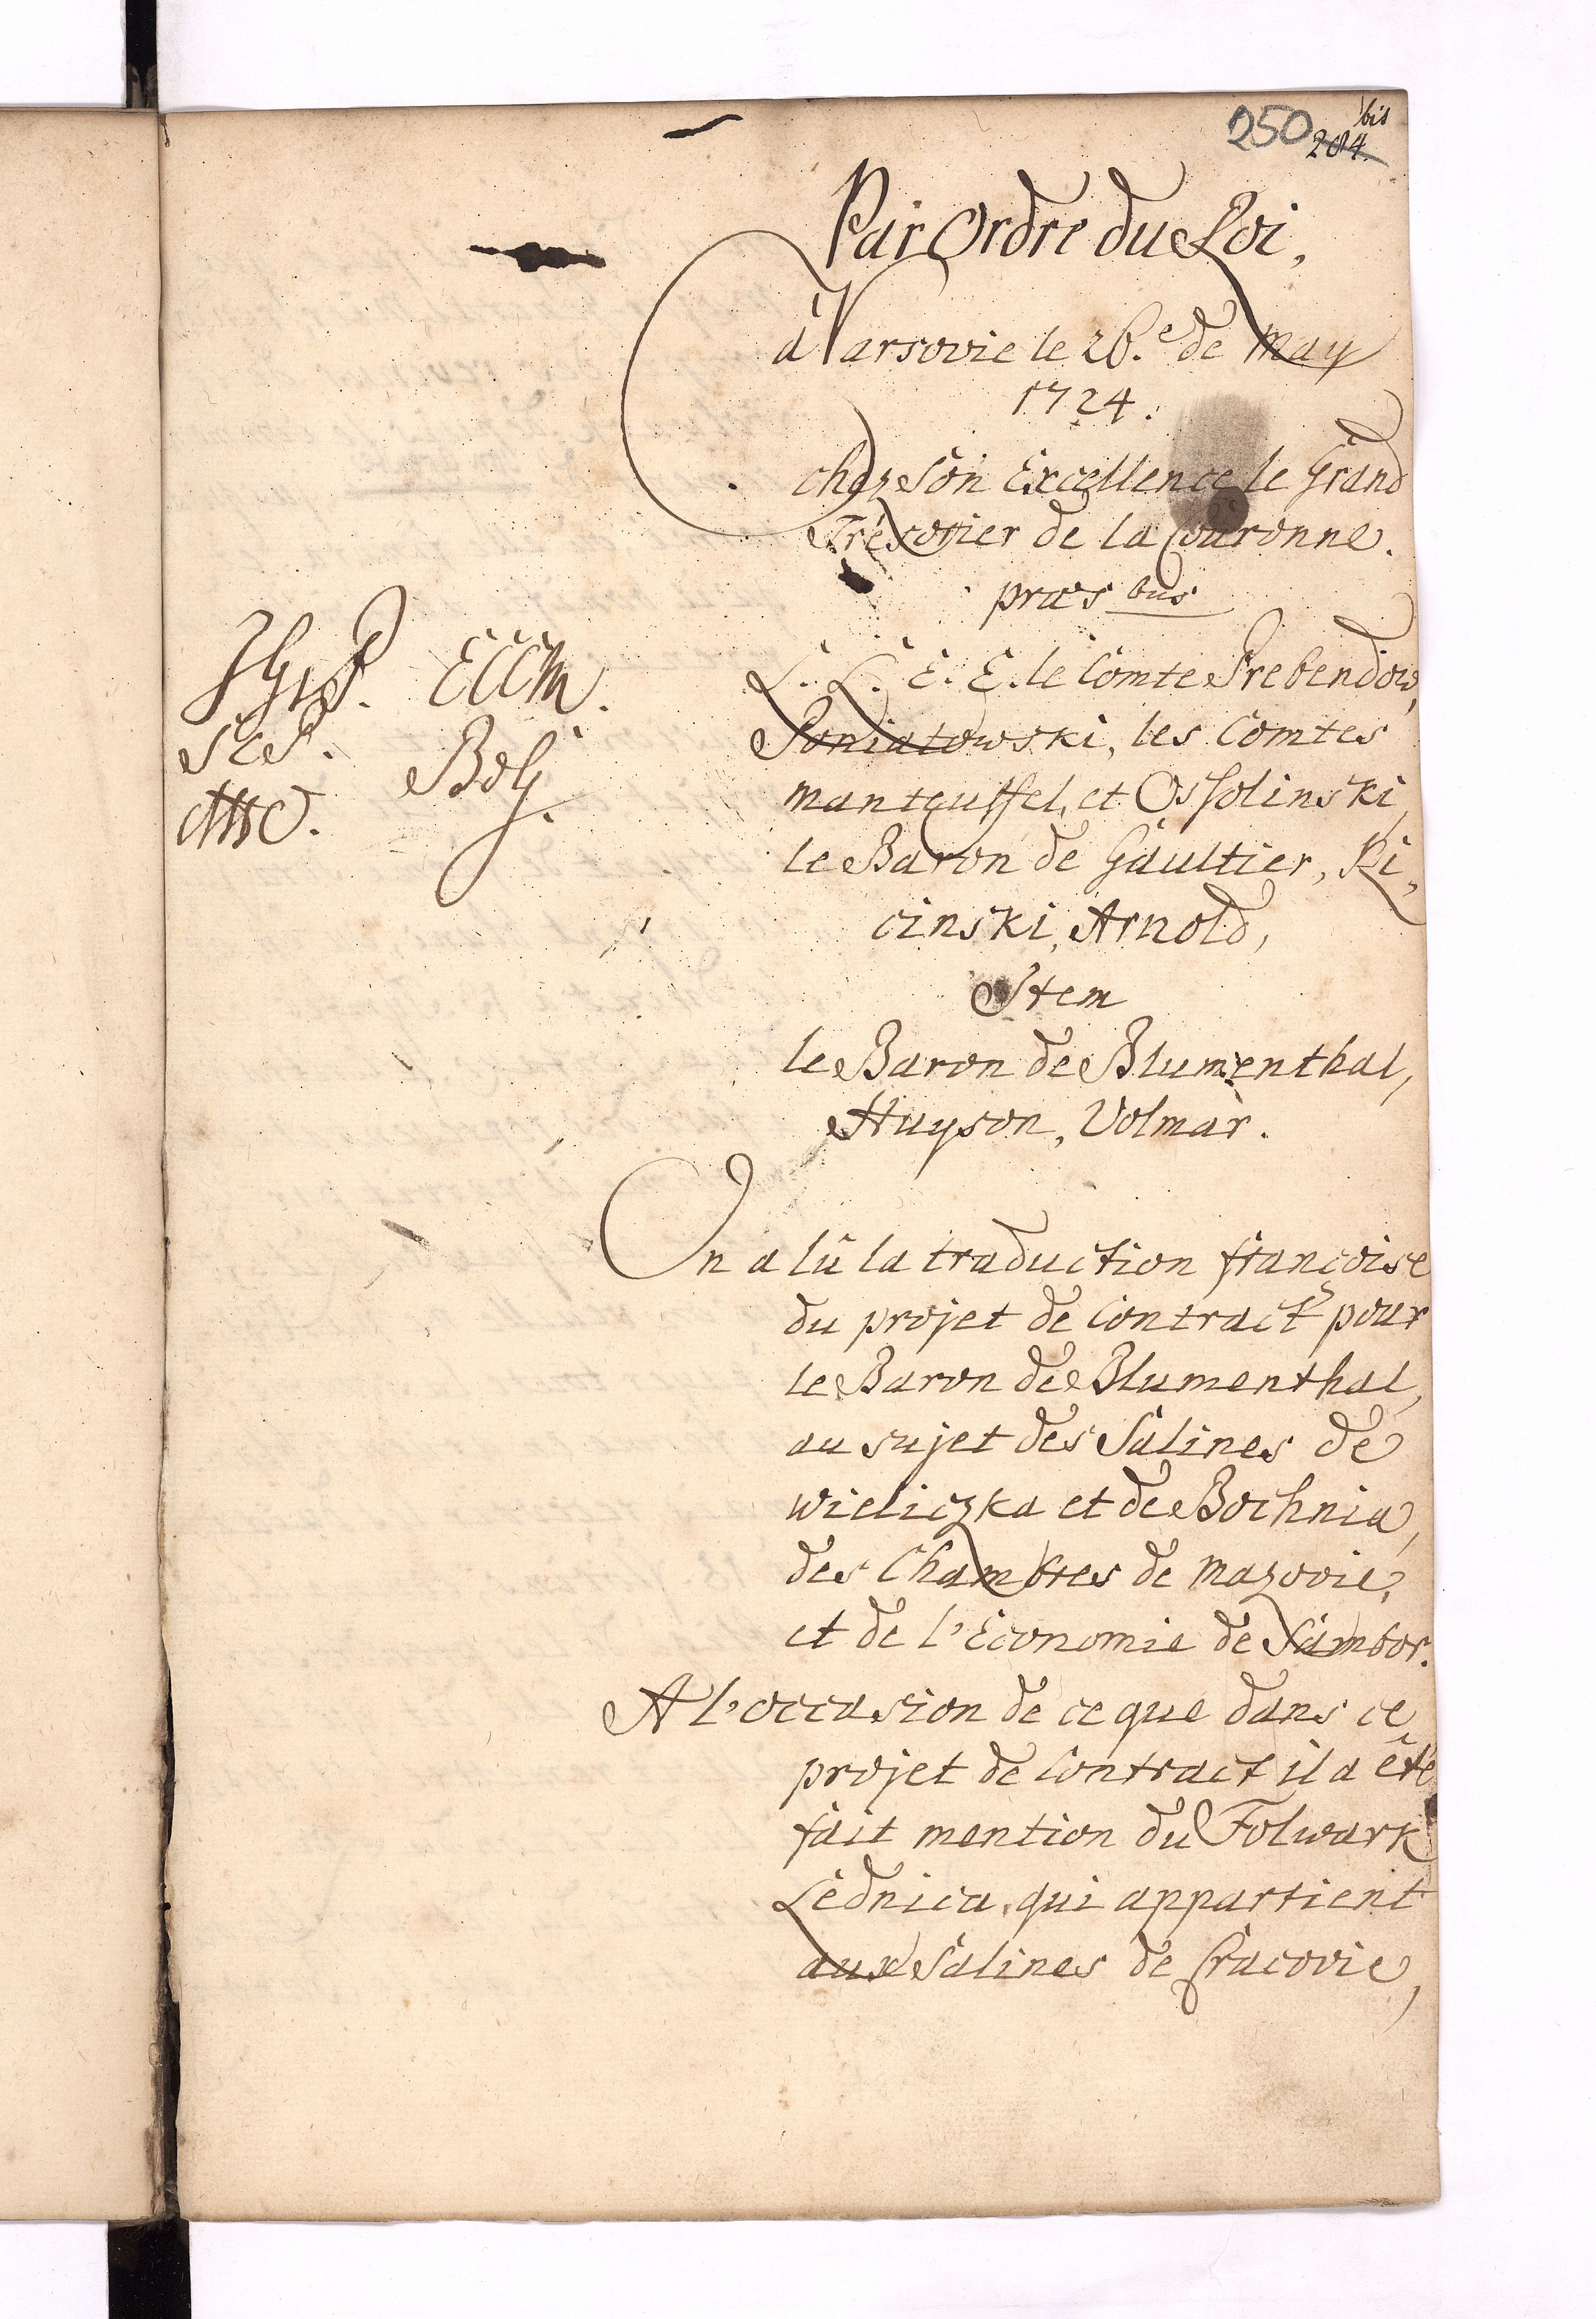 250 bis
204.
Par Ordre du Roi,
à Varsovie le 26.e de May
1724.
chez Son Excellence le Grand
Trésorier de la Couronne.
præs bus
L. L. E. E. le Comte Prebendow,
Poniatowski, les Comtes
Manteuffel, et Ossolinski,
le Baron de Gaultier, Ri,
cinski, Arnold,
Item
le Baron de Blumenthal,
Huyson, Volmar.
On a lû la traduction françoise
du projet de Contract pour
le Baron de Blumenthal,
au sujet des Salines de
Wieliczka et de Bochnia,
des Chambres de Mazovie,
et de l'Economie de Sambor.
A l'occasion de ce que dans ce
projet de Contract il a êté
fait mention du Folwark
Lednica, qui appartient
aux Salines de Cracovie,